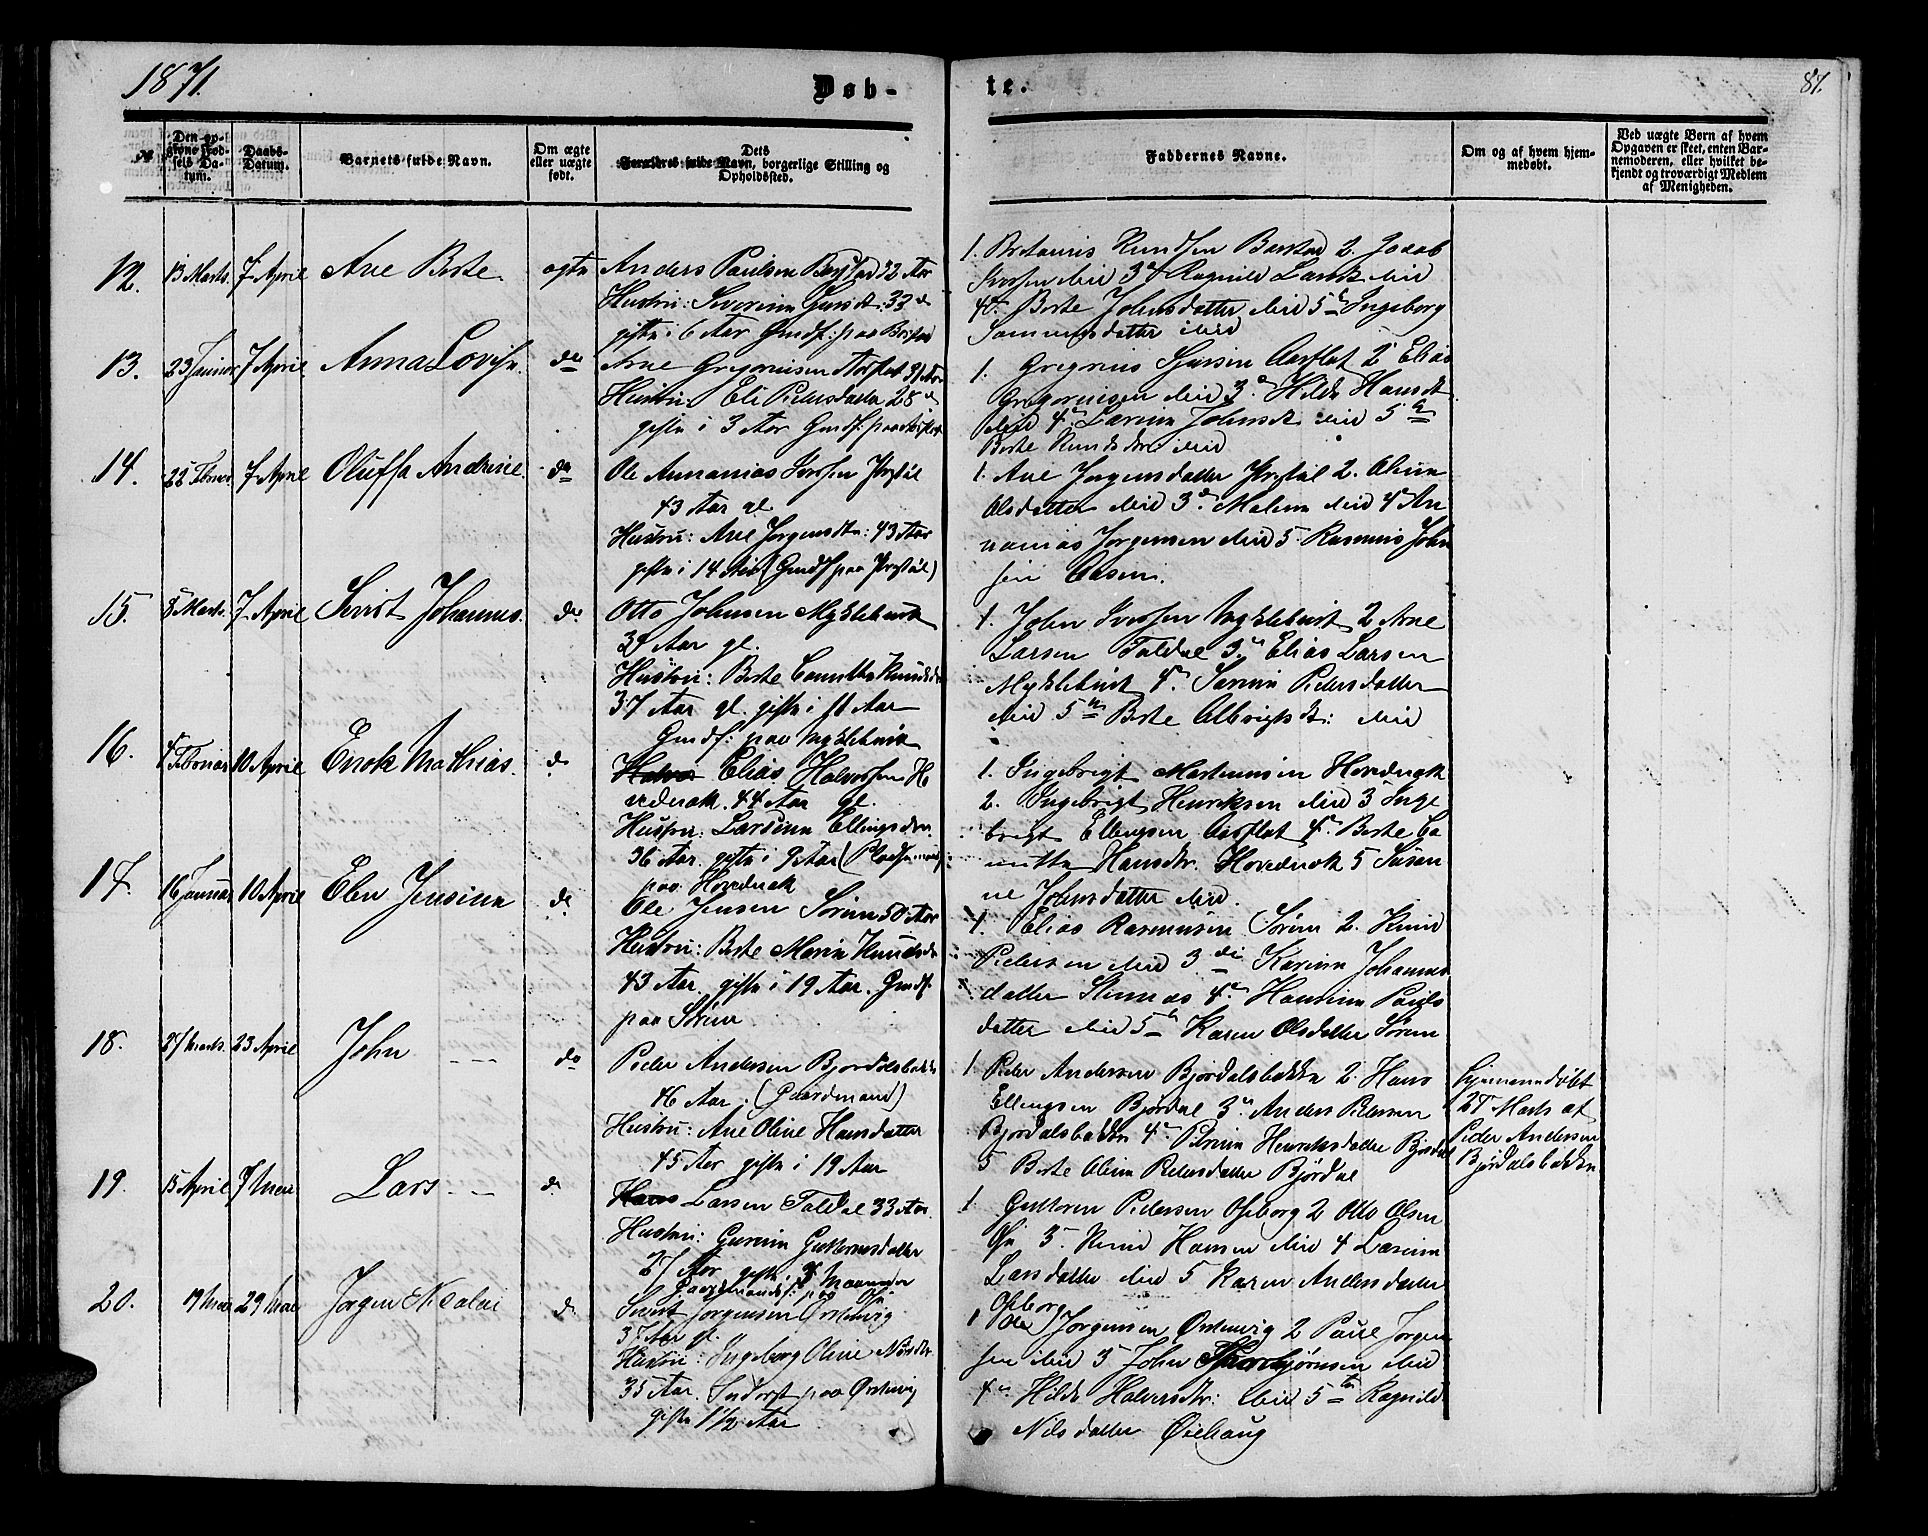 1871.
Døb-
te.
87.
№
Den op-
givne Fød-
sels Da-
tum.
Daabs-
Datum.
Barnets fulde Navn.
Om ægte
eller uægte
født.
Dets
Forældres fulde Navn, borgerlige Stilling og
Opholdssted.
Faddernes Navne.
Om og af hvem hjem-
medøbt.
Ved uægte Børn af hvem
Opgaven er skeet, enten Bar-
nemoderen, eller hvilket be-
kjendt og troværdigt Medlem
af Menigheden.
12. 13 Marts. 7 April Ane Berte
Anders Paulsen 32 Aar
Hustru: Severine 33
gifte i 6 Aar Grudf: paa
Knudsen 2. Jacob
Iversen ibid 3 Ragnild ibid
4 Berte Johnsdatter ibid 5 Ingeborg
ibid
13. 23 Januar 7 April. Anna Lovise. do
Arne Gregoriusen Aarflot 31 Aar
Hustru Eli Pedersdatter 28
gifte i 3 Aar Grudf: paa Aarflot
1. Gregorius Aarflot 2 Elias
Gregoriusen ibid 3 Hilde Hansdt
ibid 4 Larine Johnsdt ibid 5
Berte ibid
14. 22 Februar 7 April Oluffa Andrine. do
Ole Annanias Iverssen
43 Aar gl.
Hustru: Ane Jørgensdtr: 43 Aar
gifte i 14 Aar (Grudf paa
1. Ane Jørgensdatter 2. Oline
Olsdatter ibid 3 Malene ibid 4 An
nanias Jørgensen ibid 5 Rasmus John
sen Aasen.
15. 5 Marts. 7 April Sivert Johannes. do
Otto Johnsen Myklebust
39 Aar gl.
Hustru: Berte
37 Aar gl. gifte i 11 Aar
Grudf: paa Myklebust
1. John Iverssen Myklebust 2 Arne
Larsen Foldal 3. Elias Larsen
Myklebust 4. Sarine Pedersdatter
ibid 5 Berte Albrigtsdt: ibid
16. 4 Februar 10 April Enok Mathias. do
Elias Halvorsen Ho
vedenak. 44 Aar gl.
Hustru: Larsine Ellingsdtr.
36 Aar. gifte i 9 Aar (Pladsemand
paa Hovedenak
1. Ingebrigt Martinusen Hovedenak
2. Ingebrigt Henriksen ibid 3 Inge
brigt Ellingsen Aarflot 4. Berte Ca
Hansdtr. Hovedenak 5 Susan
ne Johnsdatter ibid.
17. 16 Januar 10 April Elen Jensine do
Ole Jensen Sørum 50 Aar
Hustru: Berte Marie Knudsdtr
43 Aar gifte i 19 Aar. Grudf.
paa Sørum
1. Elias Rasmusen Sørum 2. Knud
Pedersen ibid 3 Karine Johannes
datter 4. Hansine Pauls
datter ibid 5 Karen Olsdatter Sørum
18. 27 Marts. 23 April John do
Peder Andersen Bjørdalsbakke
46 Aar. (Gaardmand)
Hustru: Ane Oline Hansdatter
45 Aar gifte i 19 Aar
1 Peder Andersen Bjørdalsbakke 2. Hans
Ellingsen Bjørdal 3 Anders Pedersen
Bjørdalsbakke 4 Petrine Henriksdatter Bjørdal
5 Berte Oline Pedersdatter Bjørdal
hjemmedøbt
27 Marts af
Peder Andersen
Bjørdalsbakke
19. 15 April 7 Mai Lars do
Hans Larsen Foldal 33 Aar.
Hustru: Gurine Guttormsdatter
27 Aar gifte i
1 Guttorm Pedersen Oseborg 2 Otto Olsen
Øie 3. Knud Hansen ibid 4 Larsine
Larsdatter ibid 5 Karen Andersdatter
Oseborg
20. 19 Mai 29 Mai Jørgen Nicolai do
Sivert Jørgensen Ørstenvig
37 Aar gl.
Hustru: Ingeborg Oline Nilsdtr.
35 Aar. Inderst paa Ørstenvig
gifte 1 1/2 Aar
1 Ole Jørgensen Ørstenvig 2 Paul Jørgen
sen ibid 3 John Thorbjørnsen ibid
4 Hilde Halvorsdtr: ibid 5 Ragnild
Nilsdatter Øiehaug